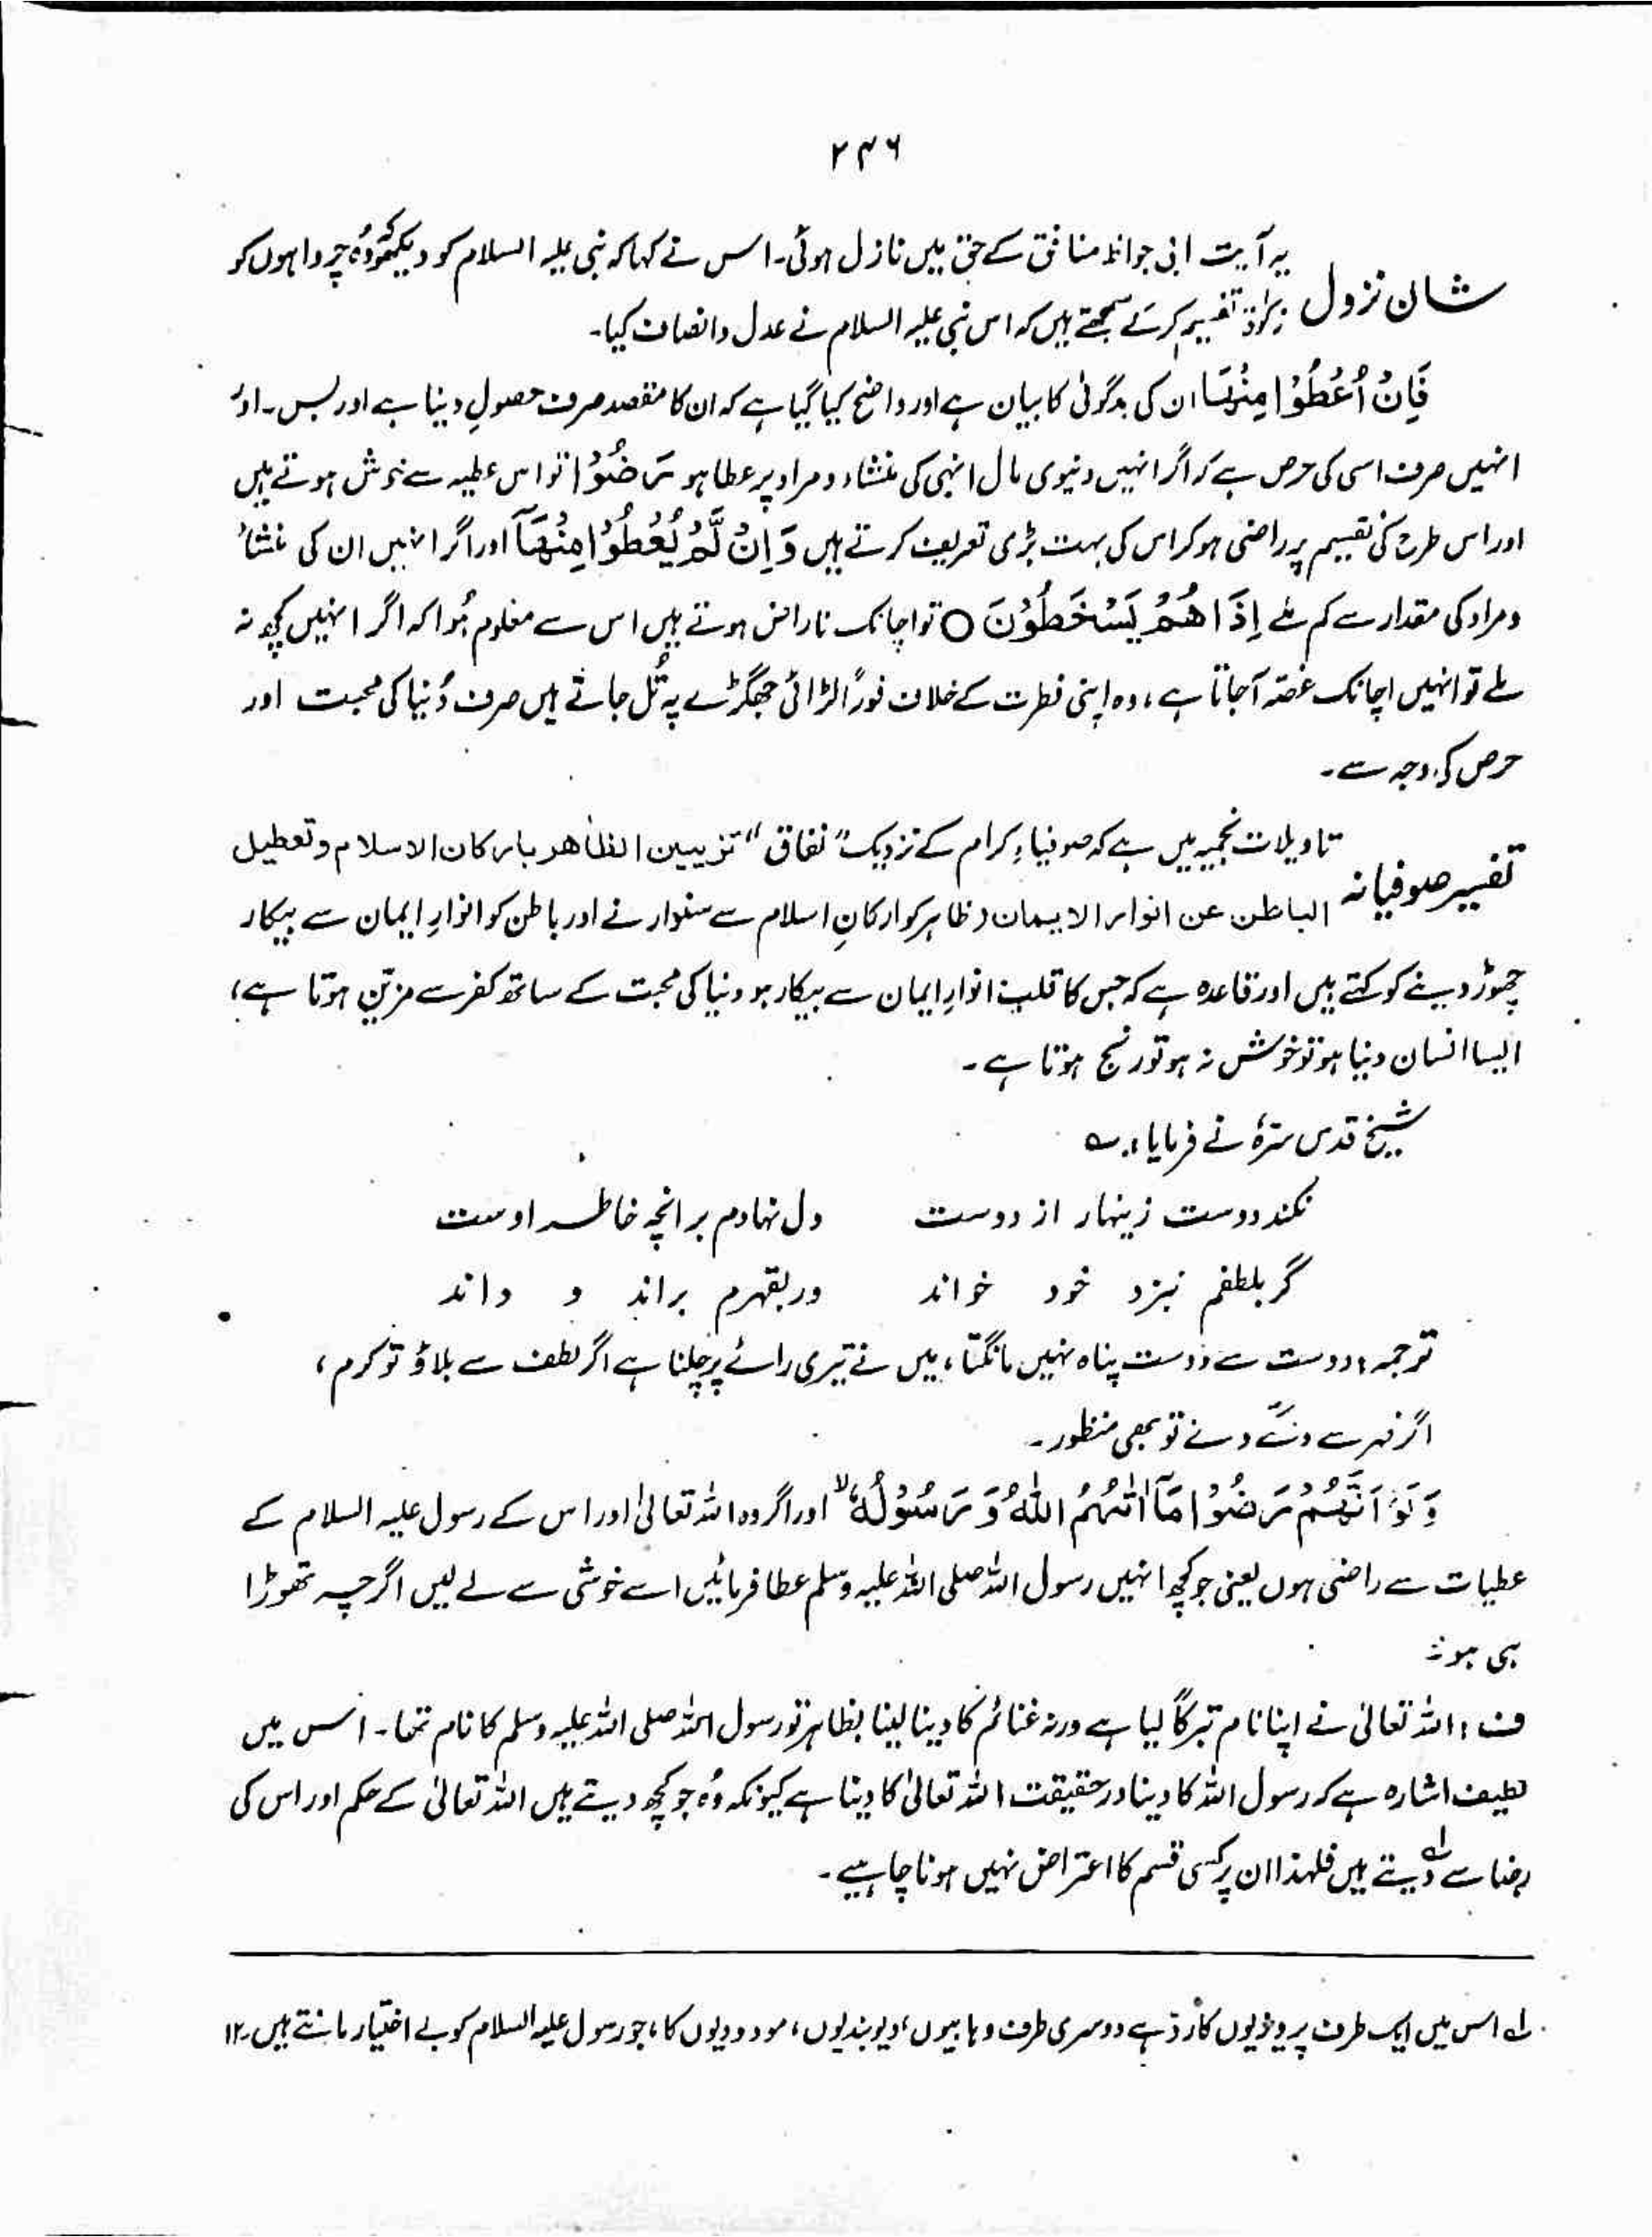 ۲۳۶
شان نزول
یہ آیت ابی جواظ منافق کے حق میں نازل ہوئی۔ اس نے کہا کہ نبی علیہ السلام کو دیکھو کہ وُہ چرواہوں کو
زکوٰۃ تقسیم کرکے سمجھتے ہیں کہ اس نبی علیہ السلام نے عدل وانصاف کیا۔
فَاِنْ اُعْطُوْا مِنْہَا ان کی بدگوئی کا بیان ہے اور واضح کیا گیا ہے کہ ان کا مقصد صرف حصولِ دینا ہے اور بس۔ اور
انہیں صرف اسی کی حرص ہے کہ اگر انہیں دنیوی مال انہی کی منشاء ومراد پر عطا ہو رَضُوْا تو اس عطیہ سے خوش ہوتے ہیں
اور اس طرح کی تقسیم پر راضی ہوکر اس کی بہت بڑی تعریف کرتے ہیں وَاِنْ لَّمْ یُعْطَوْا مِنْہَآ اور اگر انہیں ان کی منشاءُ
ومراد کی مقدار سے کم ملے اِذَا هُمْ یَسْخَطُوْنَ ○ تو اچانک ناراض ہوتے ہیں اس سے معلوم ہُوا کہ اگر انہیں کچھ نہ
ملے تو انہیں اچانک غصّہ آجاتا ہے، وہ اپنی فطرت کے خلاف فوراً لڑائی جھگڑے پہ تُل جاتے ہیں صرف دُنیا کی محبت اور
حرص کی وجہ سے۔
تفسیر صوفیانہ
تاویلات نجمیہ میں ہے کہ صوفیاءِ کرام کے نزدیک "نفاق" تزیین الظاھر بارکان الاسلام وتعطیل
الباطن عن انوار الایمان (ظاہر کو ارکانِ اسلام سے سنوارنے اور باطن کو انوارِ ایمان سے بیکار
چھوڑ دینے کو کہتے ہیں اور قاعدہ ہے کہ جس کا قلب انوارِ ایمان سے بیکار ہو دنیا کی محبت کے ساتھ کفر سے مزیّن ہوتا ہے،
ایسا انسان دنیا ہو تو خوش نہ ہو تو رنج ہوتا ہے۔
شیخ قدس سترہٗ نے فرمایا: ؎
نکند دوست زینہار از دوست دل نہادم برانچہ خاطر اوست
گر بلطفم نبزد خود خواند ور بقہرم براند و داند
ترجمہ: دوست سے دوست پناہ نہیں مانگتا، میں نے تیری رائے پر چلنا ہے اگر لطف سے بلاؤ تو کرم،
اگر قہر سے دے تو بھی منظور۔
وَلَوْ اَنَّہُمْ رَضُوْا مَآ اٰتٰہُمُ اللّٰہُ وَرَسُوْلُہٗ لا اور اگر وہ اللہ تعالیٰ اور اس کے رسول علیہ السلام کے
عطیات سے راضی ہوں یعنی جو کچھ انہیں رسول اللہ صلی اللہ علیہ وسلم عطا فرمائیں اسے خوشی سے لے لیں اگرچہ تھوڑا
ہی ہو۔
ف: اللہ تعالیٰ نے اپنا نام تبرکاً لیا ہے ورنہ غنائم کا دینا لینا بظاہر تو رسول اللہ صلی اللہ علیہ وسلم کا نام تھا۔ اس میں
لطیف اشارہ ہے کہ رسول اللہ کا دینا درحقیقت اللہ تعالیٰ کا دینا ہے کیونکہ وُہ جو کچھ دیتے ہیں اللہ تعالیٰ کے حکم اور اس کی
رضا سے دیتے ہیں لہ فلہذا ان پر کسی قسم کا اعتراض نہیں ہونا چاہیے۔
لہ اس میں ایک طرف پرویزیوں کا رد ہے دوسری طرف وہابیوں، دیوبندیوں، مودودیوں کا، جو رسول علیہ السلام کو بے اختیار مانتے ہیں ۔۱۲